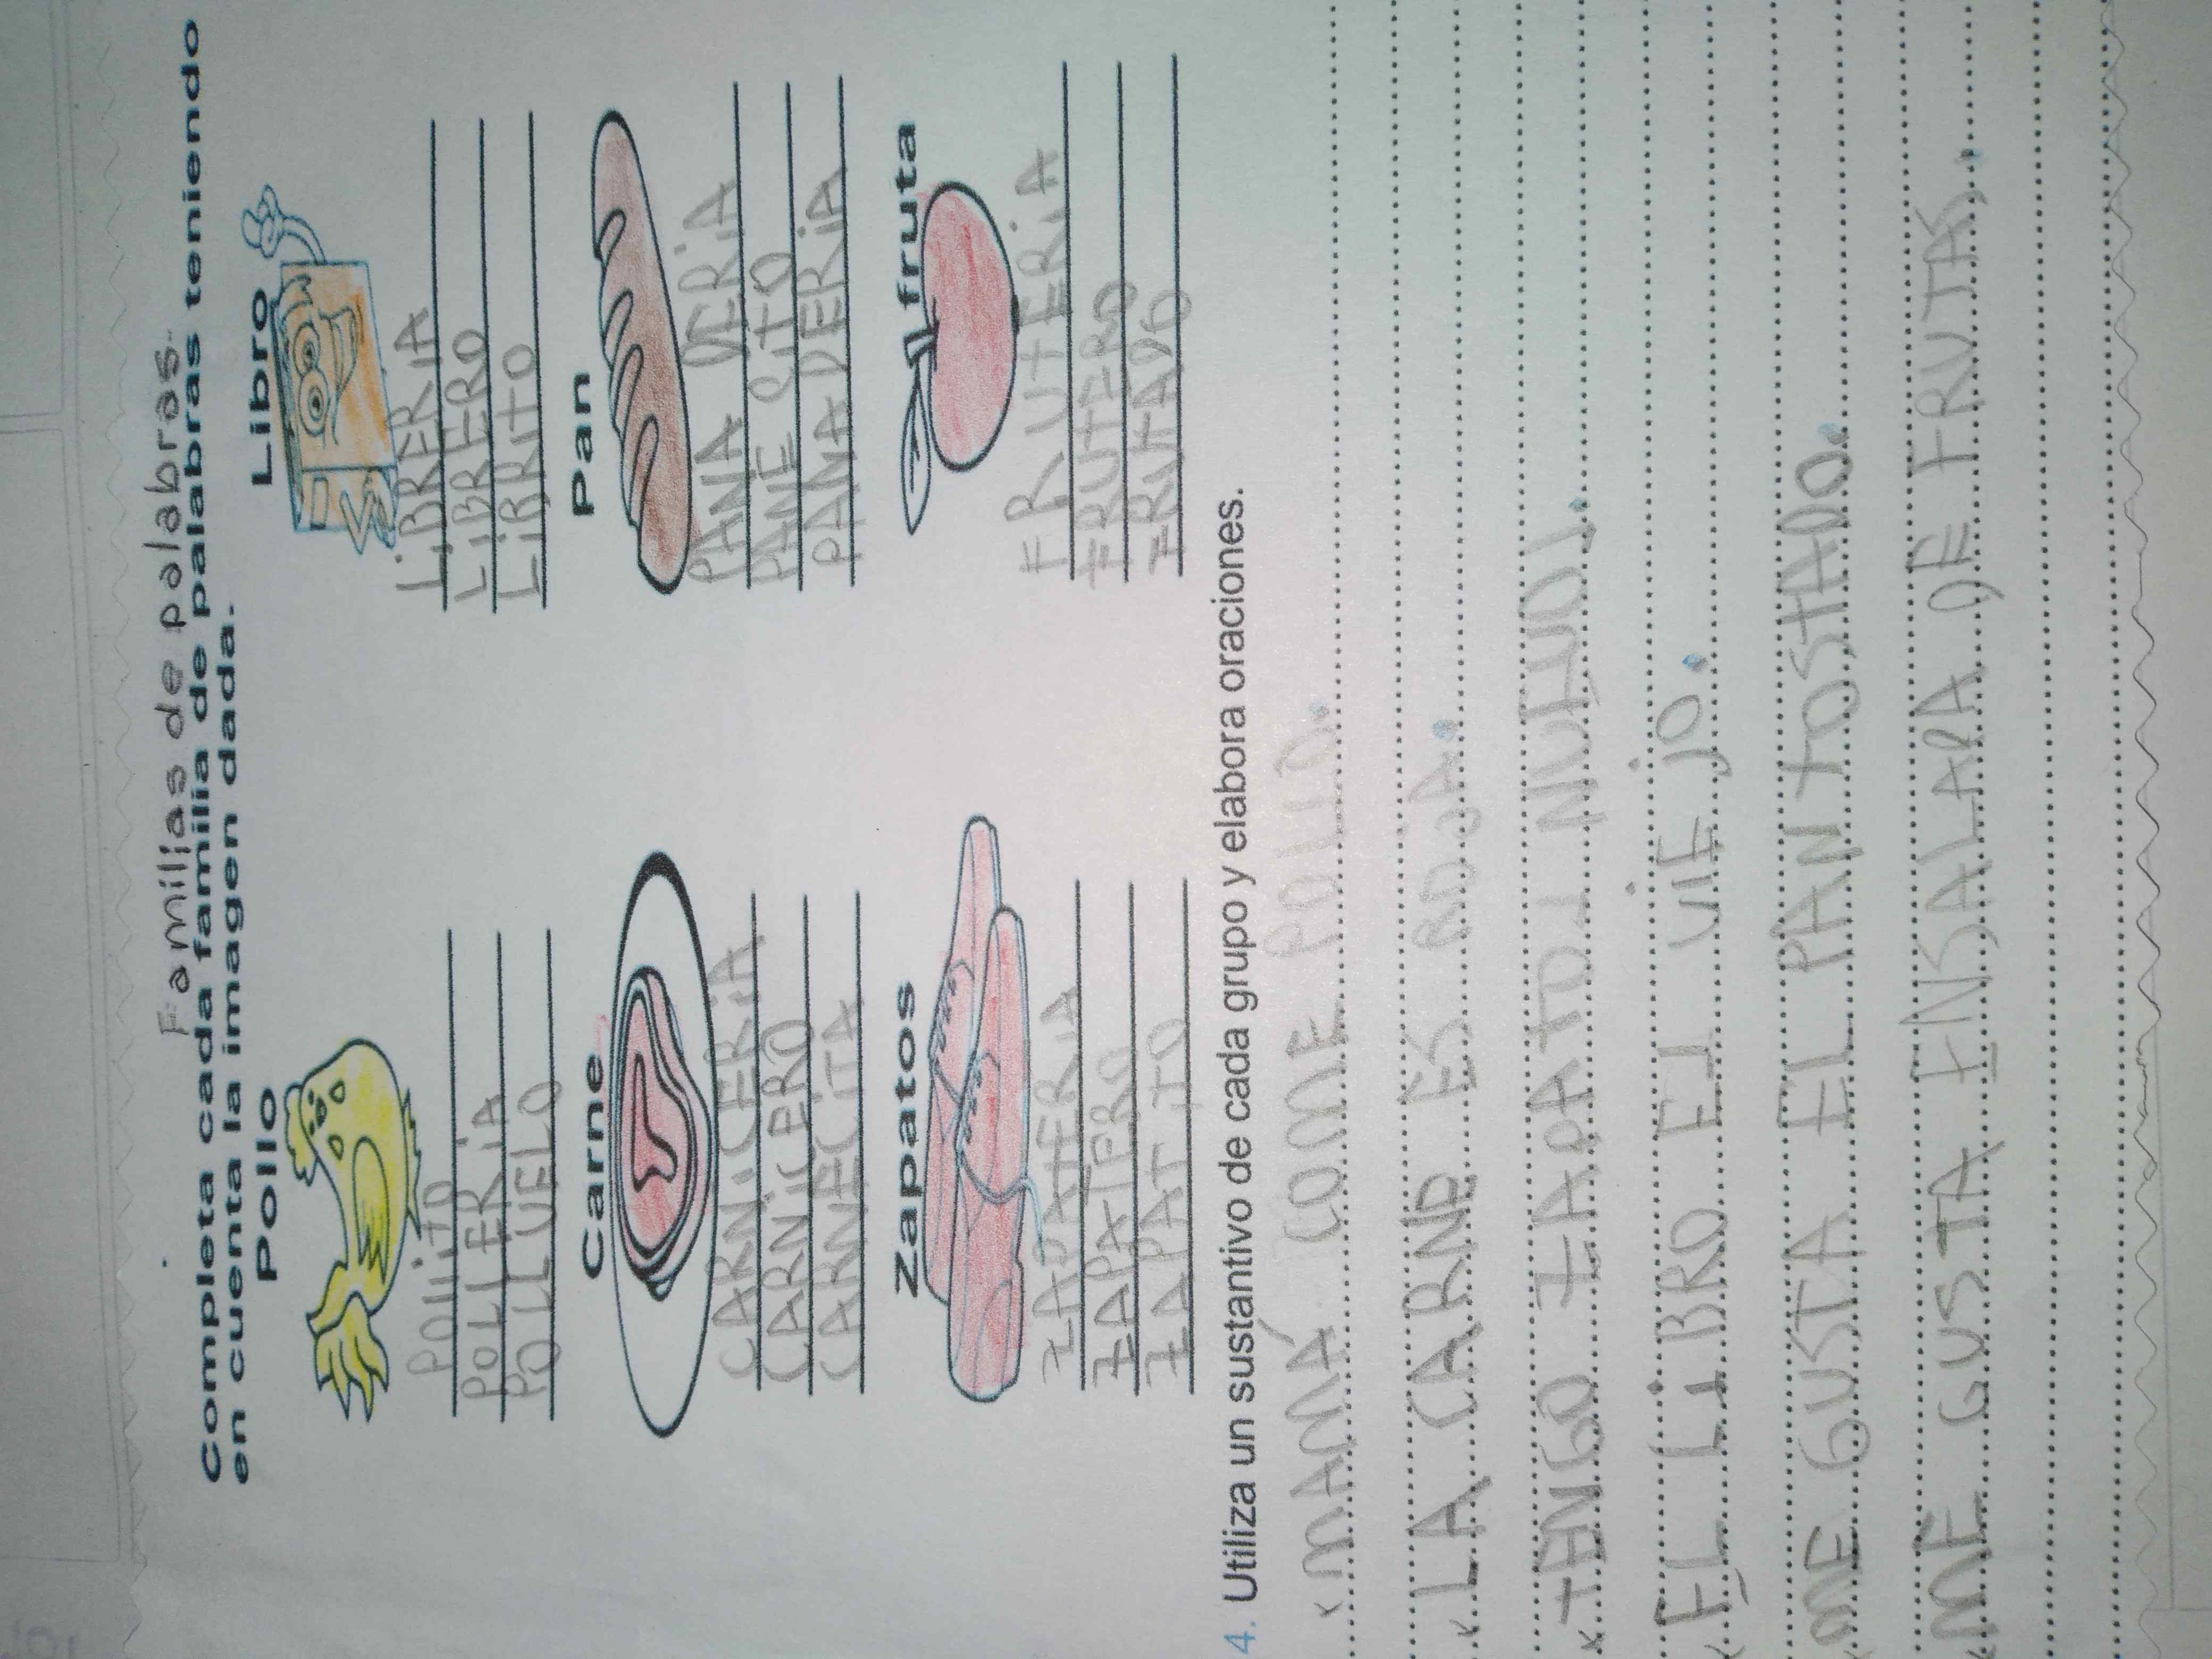 Familias de palabras
Completa cada familia de palabras teniendo
en cuenta la imagen dada.
Pollo
POLLITO
POLLERIA
POLLUELO
Libro
LIBRERIA
LIBRERO
LIBRITO
Carne
CARNICERIA
CARNICERO
CARNECITA
Pan
PANA DERIA
PANE CITO
PANADERIA
Zapatos
ZAPATERIA
ZAPATERO
ZAPATITO
fruta
FRUTERIA
FRUTERO
FRUTADO
4. Utiliza un sustantivo de cada grupo y elabora oraciones.
MAMÁ COME POLLO.
LA CARNE ES ROJA.
TENGO ZAPATOS NUEVOS.
EL LIBRO ES VIEJO.
ME GUSTA EL PAN TOSTADO.
ME GUSTA ENSALADA DE FRUTAS.